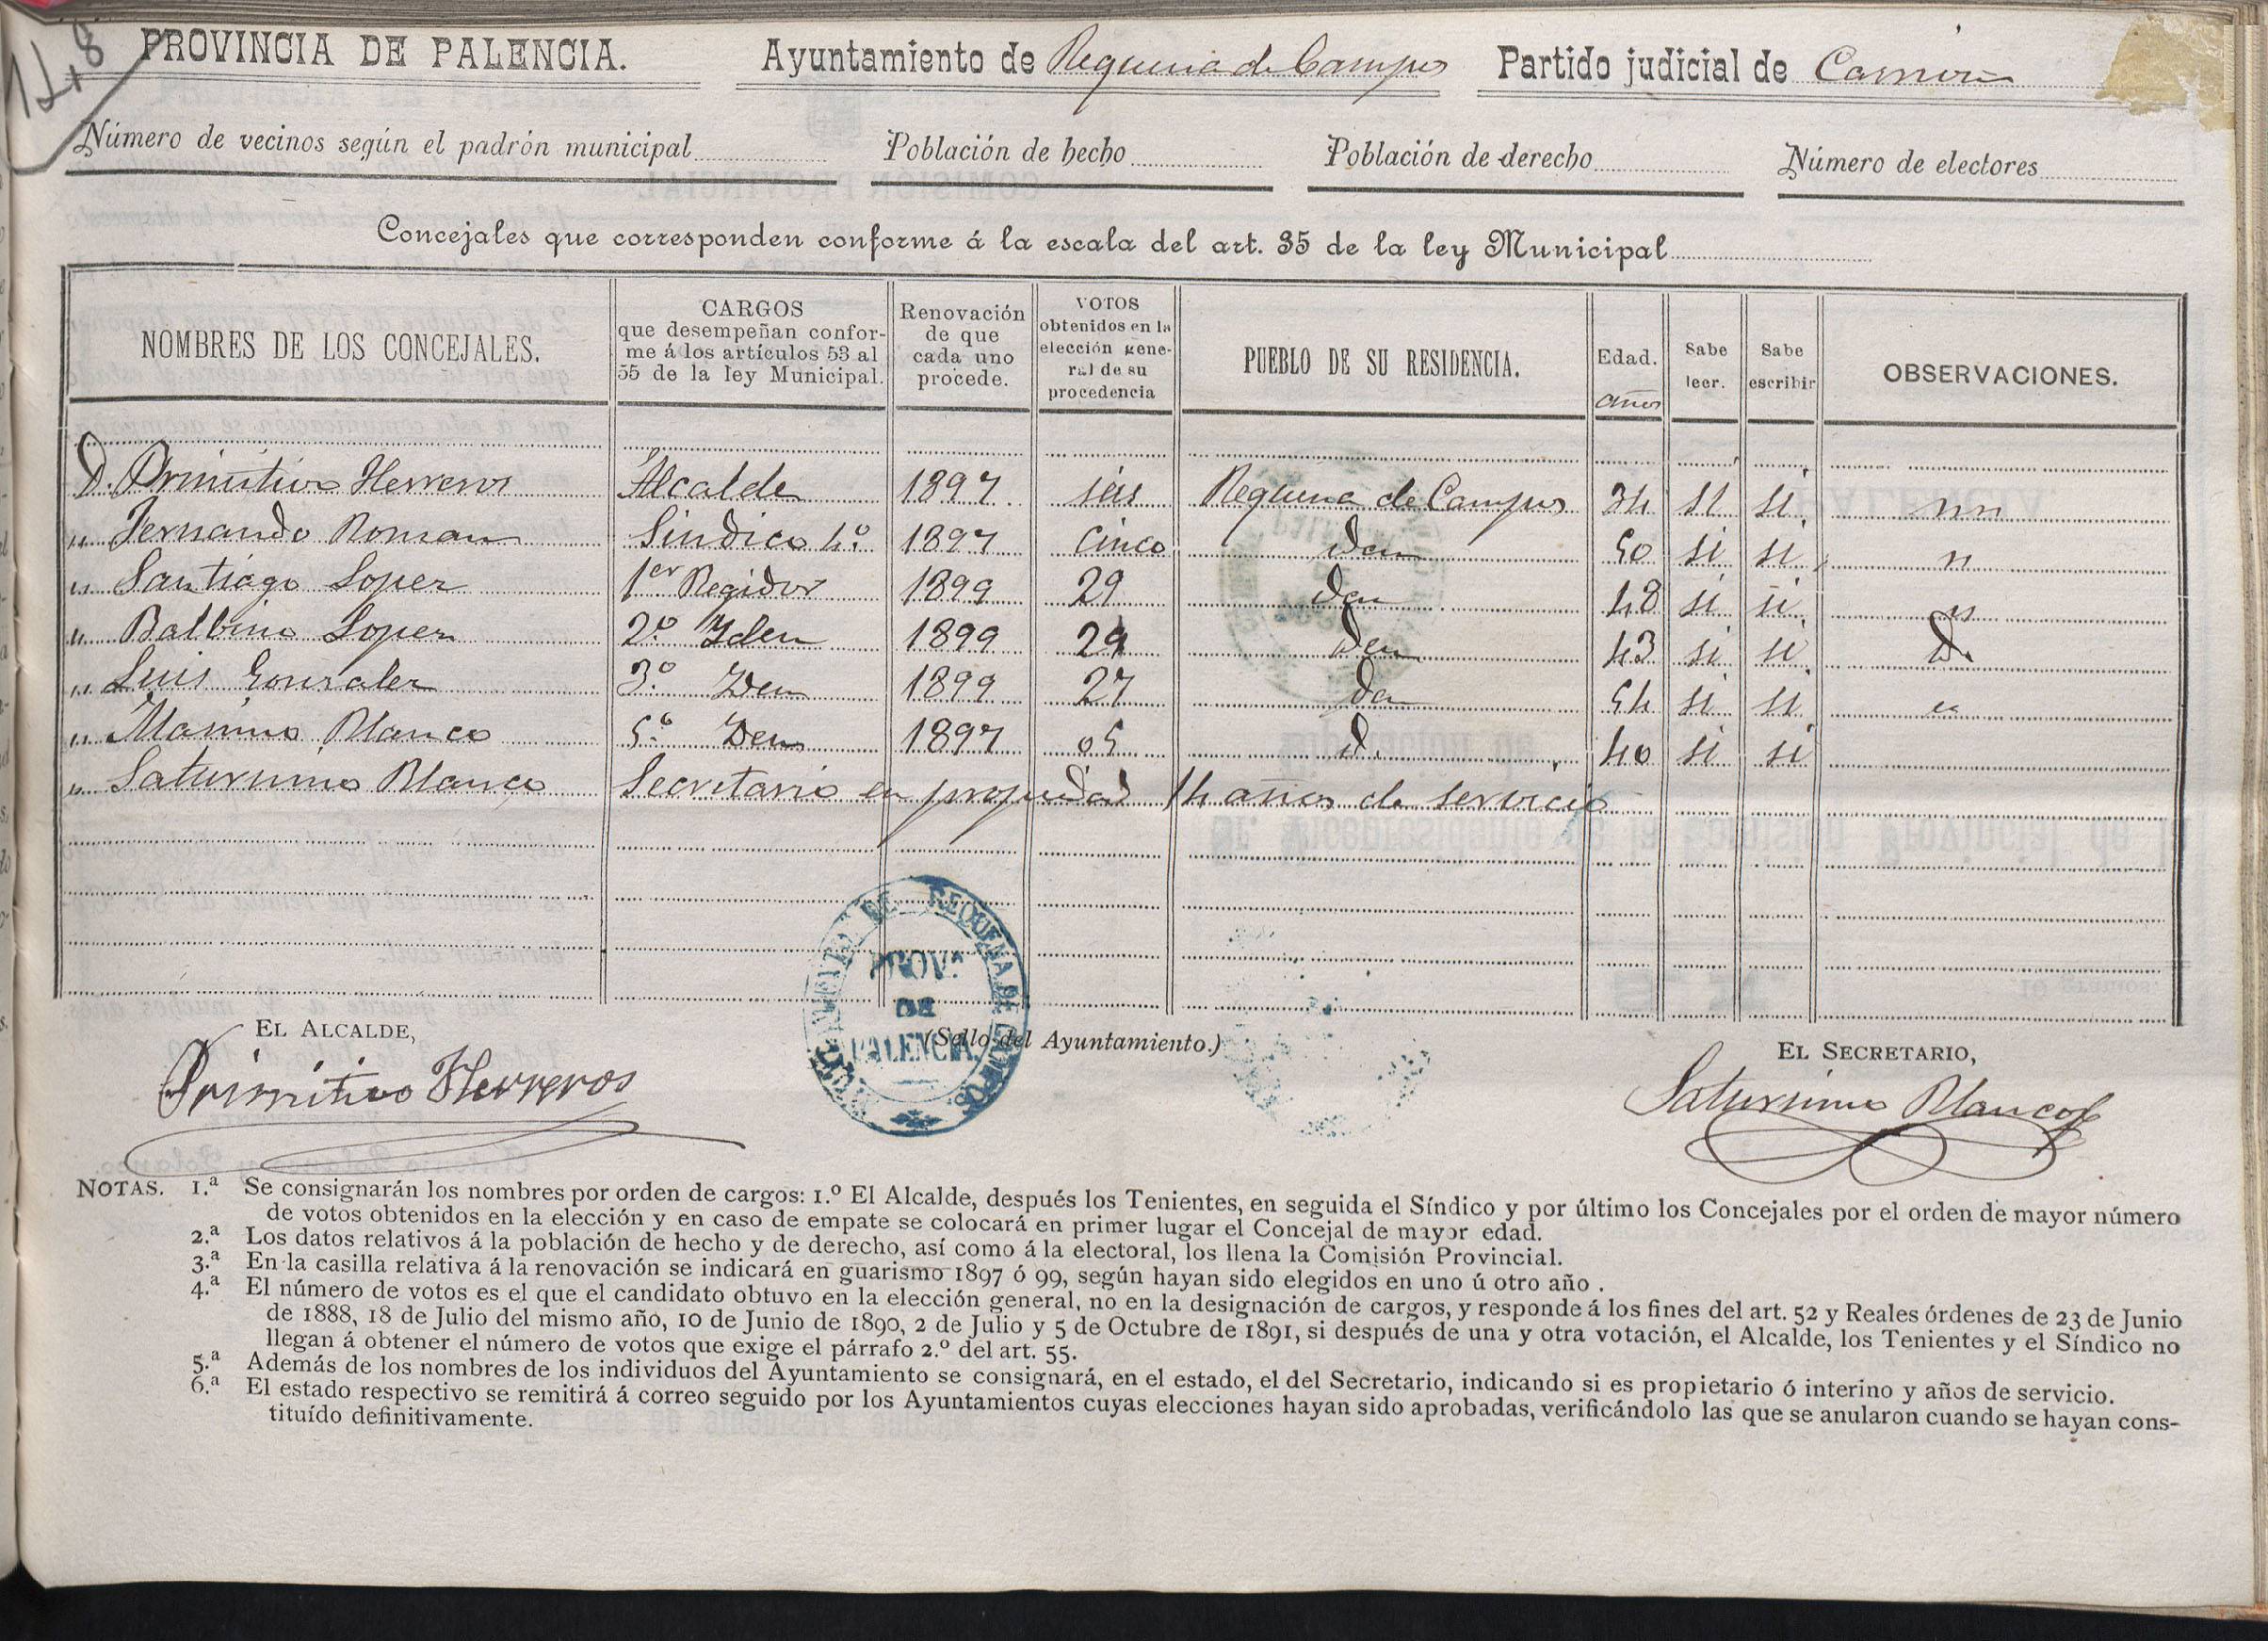 148
PROVINCIA DE PALENCIA. Ayuntamiento de Requena de Campos Partido judicial de Carrion
Número de vecinos según el padrón municipal Población de hecho Población de derecho Número de electores
Concejales que corresponden conforme á la escala del art. 35 de la ley Municipal
NOMBRES DE LOS CONCEJALES. CARGOS que desempeñan conforme á los artículos 53 al 55 de la ley Municipal. Renovación de que cada uno procede. VOTOS obtenidos en la elección general de su procedencia PUEBLO DE SU RESIDENCIA. Edad. años Sabe leer. Sabe escribir OBSERVACIONES.
D. Primitivo Herreros Alcalde 1897 seis Requena de Campos 34 si si
" Fernando Roman Sindico 4.º 1897 cinco Iden 50 si si "
" Santiago Lopez 1er Regidor 1899 29 Iden 48 si si "
" Balbino Lopez 2.º Iden 1899 29 Iden 43 si si D.
" Luis Gonzalez 3.º Iden 1899 27 Iden 54 si si "
" Maximo Blanco 5.º Iden 1897 05 d. 40 si si
" Saturnino Blanco Secretario en propiedad 14 años de servicio
EL ALCALDE, (Sello del Ayuntamiento.) EL SECRETARIO,
AYUNTAMIENTO DE REQUENA DE CAMPOS
PROVª
DE
PALENCIA
Primitivo Herreros Saturnino Blanco
NOTAS. 1.ª Se consignarán los nombres por orden de cargos: 1.º El Alcalde, después los Tenientes, en seguida el Síndico y por último los Concejales por el orden de mayor número
de votos obtenidos en la elección y en caso de empate se colocará en primer lugar el Concejal de mayor edad.
2.ª Los datos relativos á la población de hecho y de derecho, así como á la electoral, los llena la Comisión Provincial.
3.ª En la casilla relativa á la renovación se indicará en guarismo 1897 ó 99, según hayan sido elegidos en uno ú otro año .
4.ª El número de votos es el que el candidato obtuvo en la elección general, no en la designación de cargos, y responde á los fines del art. 52 y Reales órdenes de 23 de Junio
de 1888, 18 de Julio del mismo año, 10 de Junio de 1890, 2 de Julio y 5 de Octubre de 1891, si después de una y otra votación, el Alcalde, los Tenientes y el Síndico no
llegan á obtener el número de votos que exige el párrafo 2.º del art. 55.
5.ª Además de los nombres de los individuos del Ayuntamiento se consignará, en el estado, el del Secretario, indicando si es propietario ó interino y años de servicio.
6.ª El estado respectivo se remitirá á correo seguido por los Ayuntamientos cuyas elecciones hayan sido aprobadas, verificándolo las que se anularon cuando se hayan cons-
tituído definitivamente.